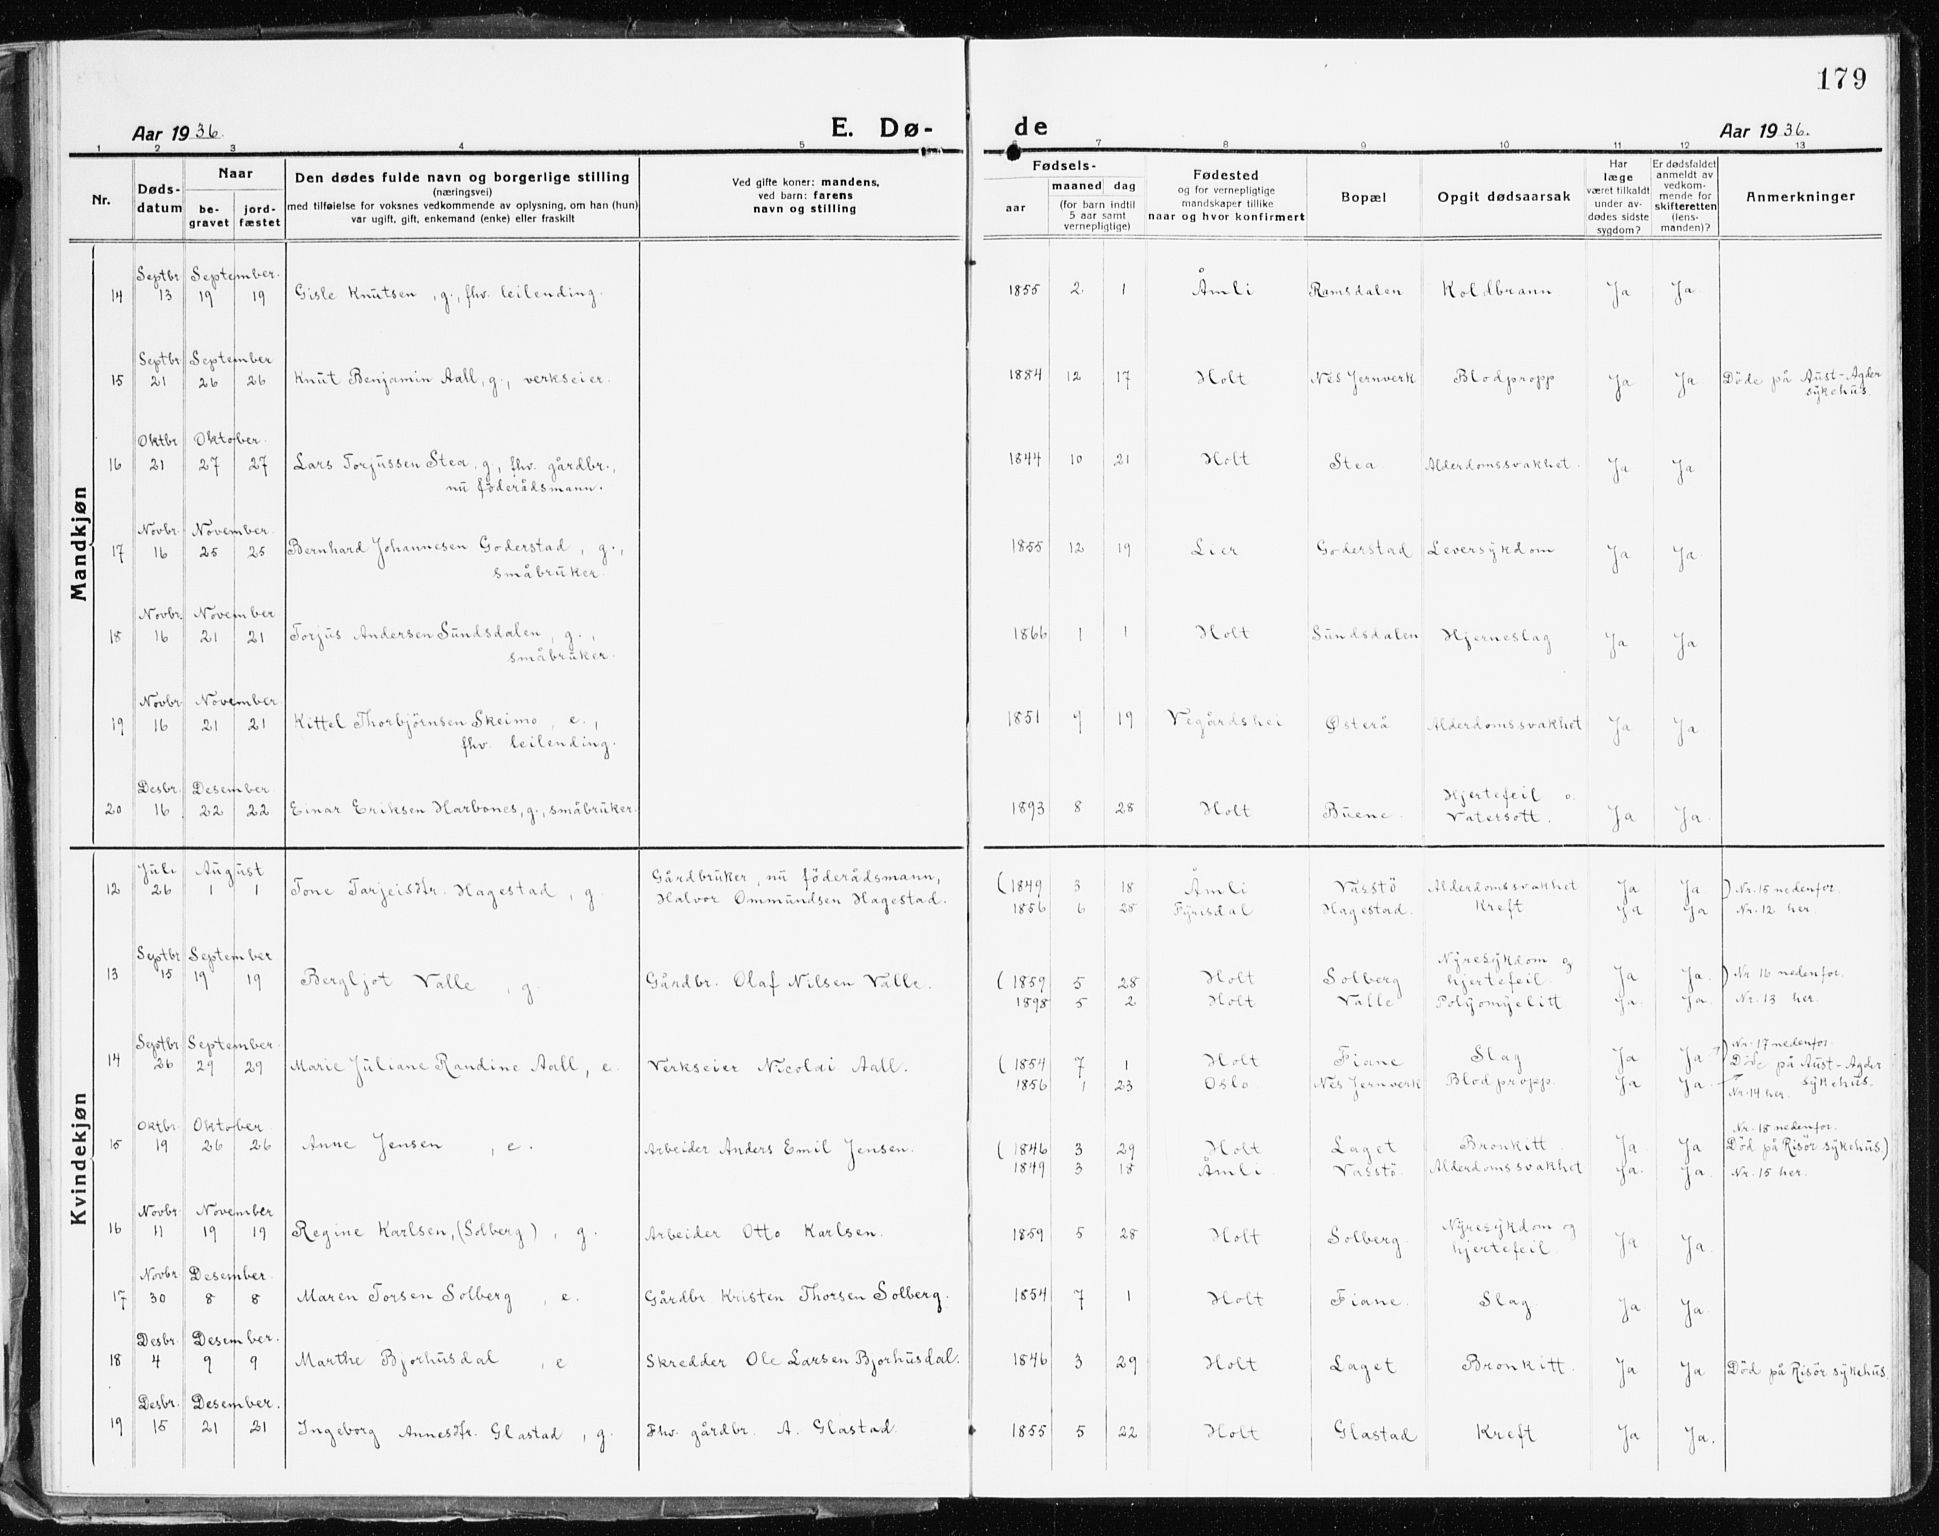 179
Aar 1936.
E. Dø-
de
Aar 1936.
1 2 3 4 5 7 8 9 10 11 12 13
Nr.
Døds-
datum
Naar
be-
gravet
jord-
fæstet
Den dødes fulde navn og borgerlige stilling
(næringsvei)
med tilføielse for voksnes vedkommende av oplysning, om han (hun)
var ugift, gift, enkemand (enke) eller fraskilt
Ved gifte koner: mandens,
ved barn: farens
navn og stilling
Fødsels-
aar
maaned dag
(for barn indtil
5 aar samt
vernepligtige)
Fødested
og for vernepligtige
mandskaper tillike
naar og hvor konfirmert
Bopæl
Opgit dødsaarsak
Har
læge
været tilkaldt
under av-
dødes sidste
sygdom?
Er dødsfaldet
anmeldt av
vedkom-
mende for
skifteretten
(lens-
manden)?
Anmerkninger
Mandkjøn
Septbr. September.
14 13 19 19 Gisle Knutsen, g., fhv. leilending. 1855 2 1 Åmli Ramsdalen Koldbrann Ja Ja.
Septbr September
15 21 26 26 Knut Benjamin Aall, g., verkseier. 1884 12 17 Holt Nes Jernverk Blodpropp Ja Ja Döde på Aust-Agder
sykehus.
Oktbr Oktober.
16 21 27 27 Lars Torjussen Stea, g., fhv. gårdbr., 1844 10 21 Holt Stea. Alderdomssvakhet. Ja Ja
nu föderådsmann.
Novbr. November.
17 16 25 25 Bernhard Johannesen Goderstad, g., 1855 12 19 Lier Goderstad Leversykdom Ja Ja.
småbruker.
Novbr. November
18 16 21 21 Torjus Andersen Sundsdalen, g., 1866 1 1 Holt Sundsdalen Hjerneslag Ja Ja
småbruker.
Novbr. November
19 16 21 21 Kittel Thorbjörnsen Skeimo, e., 1851 9 19 Vegårdshei Østerå Alderdomssvakhet Ja Ja
fhv. leilending.
Desbr. Desember.
20 16 22 22 Einar Eriksen Harbones, g., småbruker. 1893 8 28 Holt Buene. Hjertefeil o.
Vatersott. Ja Ja.
Kvindekjøn
Juli August
12 26 1 1 Tone Tarjeisdtr. Hagestad, g. Gårdbruker, nu föderådsmann,
Halvor Ommundsen Hagestad.
(1849 3 18 Åmli Vasstö Alderdomssvakhet Ja Ja ) Nr. 15 nedenfor.
1856 6 28 Fyrisdal Hagestad. Kreft Ja Ja Nr. 12 her.
Septbr September
13 15 19 19 Bergljot Valle, g. Gårdbr. Olaf Nilsen Valle.
(1859 5 28 Holt Solberg Nyresykdom og
hjertefeil. Ja Ja. ) Nr 16 nedenfor.
1898 5 2 Holt Valle Polyomyelitt Ja. Ja. Nr. 13 her.
Septbr. September.
14 26 29 29 Marie Juliane Randine Aall, e. Verkseier Nicolai Aall.
(1854 7 1 Holt Fiane Slag Ja Ja ) Nr. 17 nedenfor.
Döde på Aust-Agder
sykehus.
1856 1 23 Oslo Nes Jernverk Blodpropp. Ja Ja. Nr. 14 her.
Oktbr. Oktober.
15 19 26 26 Anne Jensen, e. Arbeider Anders Emil Jensen.
Nr. 18 nedenfor.
(1846 3 29 Holt Laget Bronkitt Ja Ja Död på Risör sykehus.)
1849 3 18 Åmli. Vasstö. Alderdomssvakhet Ja. Ja. Nr. 15 her.
Novbr. November
16 11 19 19 Regine Karlsen, (Solberg), g. Arbeider Otto Karlsen. 1859 5 28 Holt Solberg. Nyresykdom og
hjertefeil. Ja Ja.
Novbr. Desember.
17 30 8 8 Maren Torsen Solberg, e. Gårdbr Kristen Thorsen Solberg. 1854 7 1 Holt Fiane. Slag Ja Ja.
Desbr. Desember.
18 4 9 9 Marthe Bjorhusdal, e Skredder Ole Larsen Bjorhusdal. 1846 3 29 Holt Laget Bronkitt. Ja Ja Död på Risör sykehus.
Desbr. Desember.
19 15 21 21 Ingeborg Annesdtr. Glastad, g. Fhv. gårdbr. A. Glastad. 1855 5 22 Holt Glastad Kreft Ja Ja.